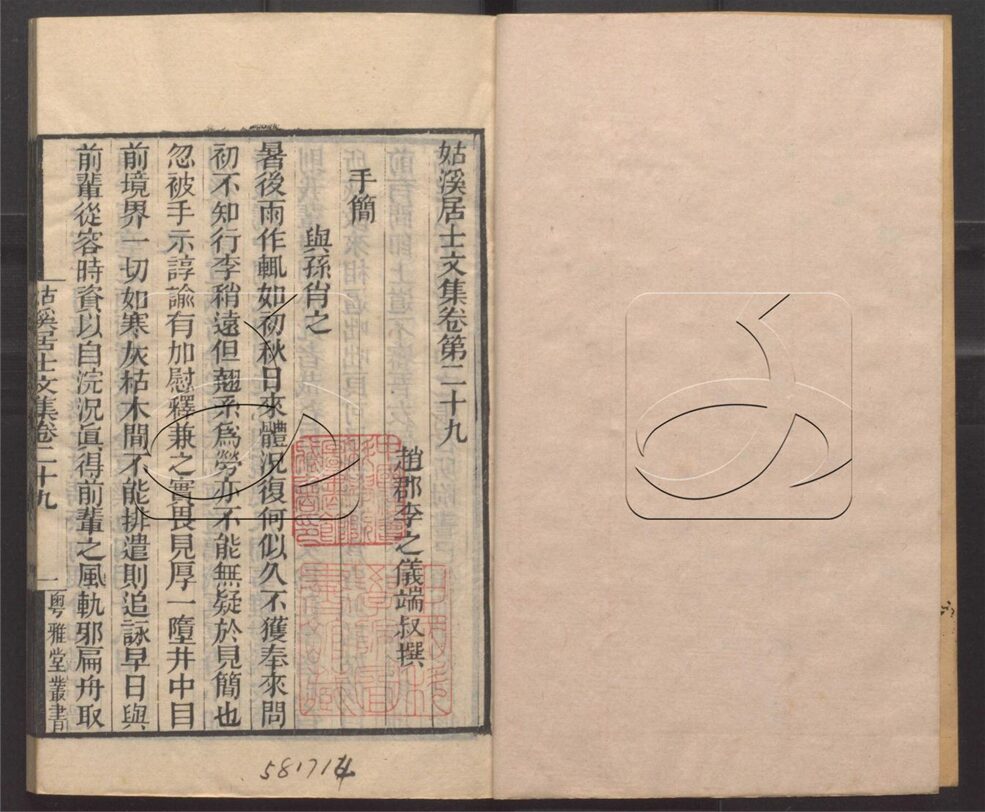 姑溪居士文集卷第二十九
趙郡李之儀端叔撰
手簡
與孫肖之
暑後雨作輒如初秋日來體況復何似久不獲奉來問
初不知行李稍遠但翹系爲勞亦不能無疑於見簡也
忽被手示諄諭有加慰釋兼之實畏見厚一墮井中目
前境界一切如寒灰枯木間不能排遣則追詠早日與
前輩從容時資以自浣況眞得前輩之風軌邪扁舟取
姑溪居士文集卷二十九
一
粤雅堂叢書
581717